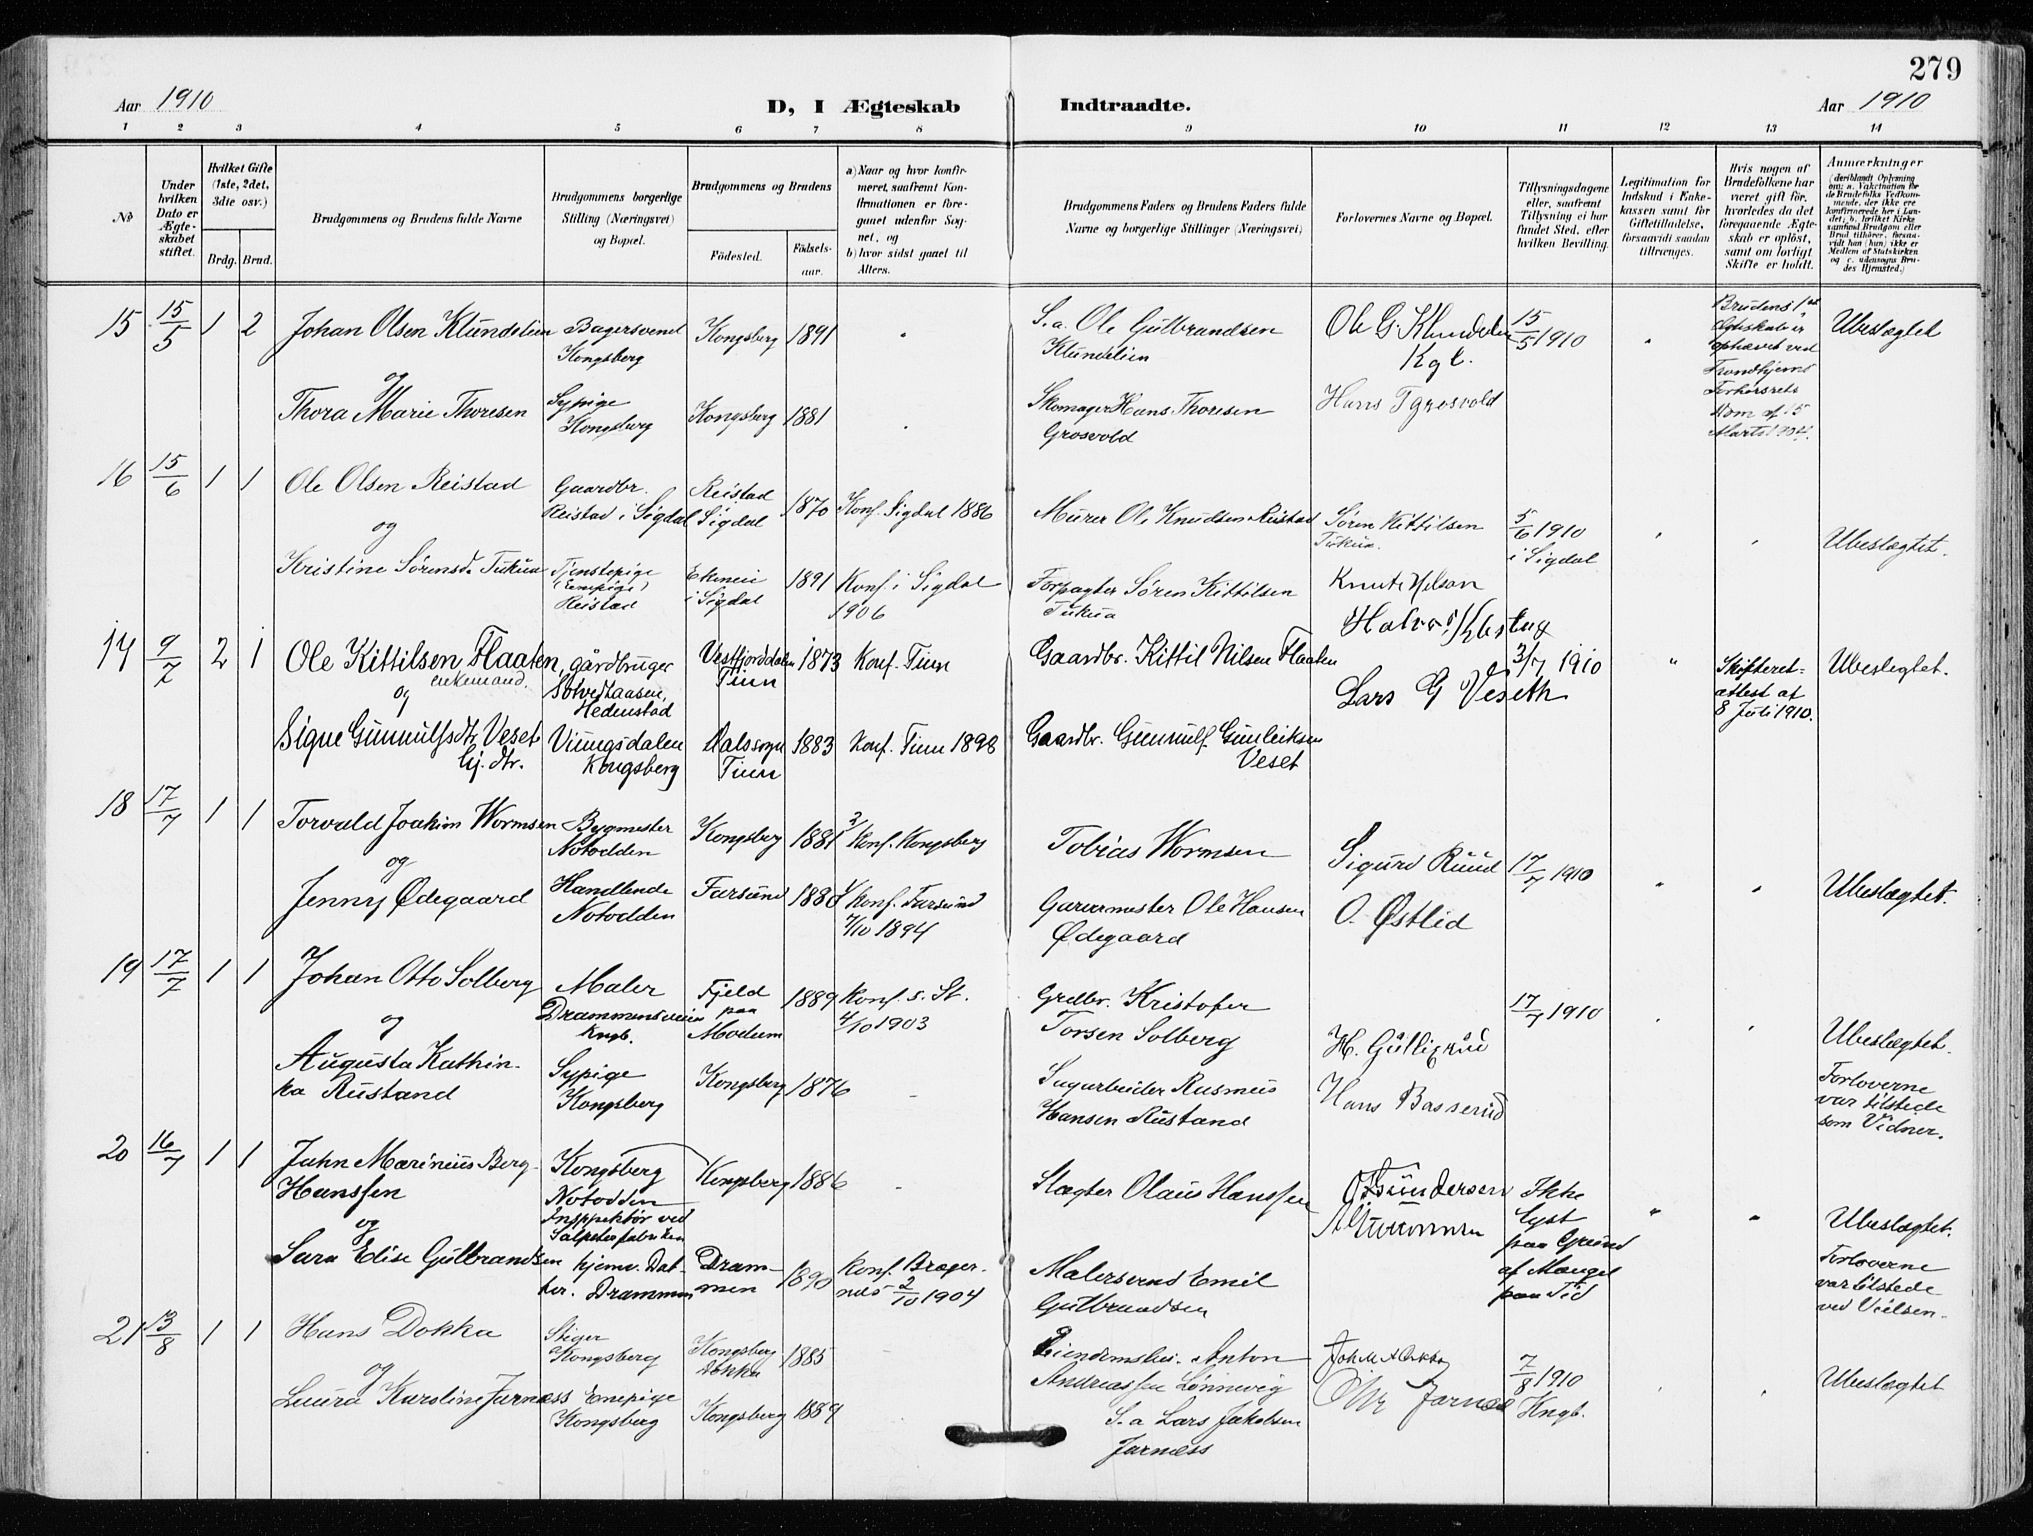 279
Aar 1910
D, I Ægteskab Indtraadte.
Aar 1910
1 2 3 4 5 6 7 8 9 10 11 12 13 14
No
Under hvilken Dato er Ægteskabet stiftet.
Hvilket Gifte (1ste, 2det, 3die osv.)
Brdg. Brud.
Brudgommens og Brudens fulde Navne
Brudgommens borgerlige Stilling (Næringsvei) og Bopæl.
Brudgommens og Brudens
Födested.
Födsels-aar.
a) Naar og hvor konfirmeret, saafremt Konfirmationen er foregaaet udenfor Sognet, og
b) hvor sidst gaaet til Alters.
Brudgommens Faders og Brudens Faders fulde Navne og borgerlige Stillinger (Næringsvei)
Forlovernes Navne og Bopæl.
Tillysningsdagene eller, saafremt Tillysning ei har fundet Sted, efter hvilken Bevilling.
Legitimation for Indskud i Enkekassen samt for Giftetilladelse, forsaavidt saadan tiltrænges.
Hvis nogen af Brudefolkene har været gift før, hvorledes da det foregaaende Ægteskab er opløst, samt om lovligt Skifte er holdt.
Anmærkninger (deriblandt Oplysning om: a. Vakcination for de Brudefolks Vedkommende, der ikke ere konfirmerede her i Landet; b. hvilket Kirkesamfund Brudgom eller Brud tilhører, forsaavidt han (hun) ikke er Medlem af Statskirken og c. udensogns Brudes Hjemsted.)
15 15/5 1 2 Johan Olsen Klundelien Bagersvend Kongsberg Kongsberg 1891
S. a. Ole Gulbrandsen Klundelien
Ole G. Klundelien Kgb.
15/5 1910
Brudens 1ste Ægteskab er ophævet ved Trondhjems Forhørsrets Dom af 15 Marts 1904.
Ubeslægtet
og
Thora Marie Thoresen Sypige Kongsberg Kongsberg 1881
Skomager Hans Thoresen Grosvold
Hans T Grosvold
16 15/6 1 1 Ole Olsen Reistad Gaardbr. Reistad i Sigdal Reistad Sigdal 1870 Konf. Sigdal 1886
Murer Ole Knudsen Reistad
Søren Kittilsen Tukua.
5/6 1910 i Sigdal
Ubeslægtet.
og
Kristine Sørensd. Tukua Tjenstepige Reistad i Sigdal 1891 Konf. i Sigdal 1906
Forpagter Søren Kittilsen Tukua
Knut Nelson
17 9/7 2 1 Ole Kittilsen Flaaten, enkemand. gårdbruger Hedenstad Vestfjorddalen Tinn 1873 Konf. Tinn
Gaardbr. Kittil Nilsen Flaaten
3/7 1910
Skifteret-attest af 8 Juli 1910.
Ubeslegtet.
og
Lars G Veseth
Signe Gunnulfsdtr. Veset Gj. dtr. Vinngsdalen Kongsberg Dalssogn Tinn 1883 Konf. Tinn 1898
Gaardbr. Gunnulf Gunleiksen Veset
18 17/7 1 1 Torvald Joakim Wormsen Bygmester Notodden Kongsberg 1881 Konf. Kongsberg
Tobias Wormsen
Sigurd Ruud
17/7 1910
Ubeslægtet.
og
Jenny Ødegaard Handlende Notodden Farsund 1880 Konf. Farsund 7/10 1894
Garvermester Ole Hansen Ødegaard
O. Østlid
19 17/7 1 1 Johan Otto Solberg Maler Drammensveien Kngb. Fjeld paa Modum 1889 Konf. s. St. 4/10 1903
Grdbr. Kristofer Torsen Solberg
17/7 1910
H. Gulligrud
Ubeslægtet.
og
Augusta Kathinka Rustand Sypige Kongsberg Kongsberg 1876
Sagarbeider Rasmus Hansen Rustand
Hans Basserud
Forloverne var tilstede som Vidner.
20 16/7 1 1 John Marinius Berg-Hanssen Kongsberg Notodden Inspektør ved Salpeterfabriken Kongsberg 1886
Slagter Olaus Hanssen
Gundersen
Ikke lyst paa Grund af Mangel paa Tid
Ubeslægtet.
og
Sara Elise Gulbrandsen hjemv. Datter. Drammen Drammen 1890 Konf. Bragernes 2/10 1904
Malersvend Emil Gulbrandsen
Forloverne var tilstede ved Vielsen.
21 13/8 1 1 Hans Dokka Stiger Kongsberg Kongsberg Dokka 1885
Eiendomsbes. Anton Andreassen Lønnevig
7/8 1910 Kngb.
Ubeslægtet
og
Laura Karoline Jarnæss Kongsberg Kongsberg 1889
S. a Lars Jakobsen Jarnæss